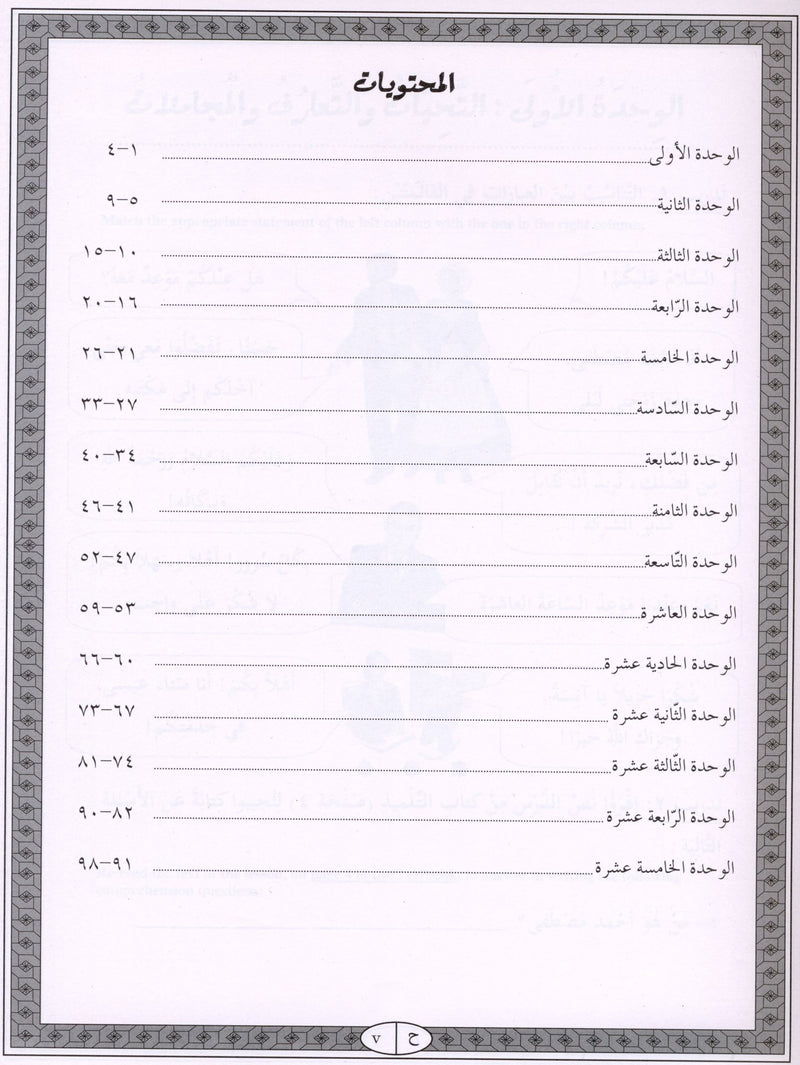 المحتويات
الوحدة الأولى ........ ١-٤
الوحدة الثانية ........ ٥-٩
الوحدة الثالثة ........ ١٠-١٥
الوحدة الرّابعة ........ ١٦-٢٠
الوحدة الخامسة ........ ٢١-٢٦
الوحدة السّادسة ........ ٢٧-٣٣
الوحدة السّابعة ........ ٣٤-٤٠
الوحدة الثامنة ........ ٤١-٤٦
الوحدة التّاسعة ........ ٤٧-٥٢
الوحدة العاشرة ........ ٥٣-٥٩
الوحدة الحادية عشرة ........ ٦٠-٦٦
الوحدة الثّانية عشرة ........ ٦٧-٧٣
الوحدة الثّالثة عشرة ........ ٧٤-٨١
الوحدة الرّابعة عشرة ........ ٨٢-٩٠
الوحدة الخامسة عشرة ........ ٩١-٩٨
ح v